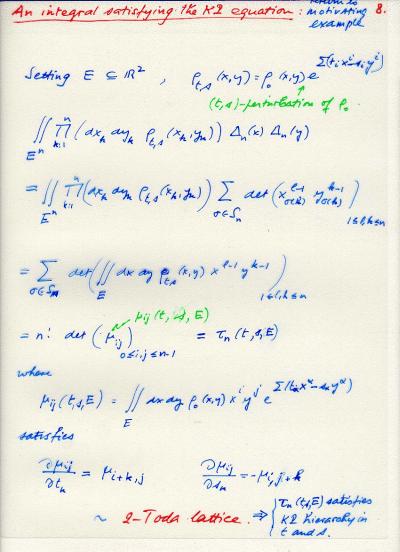 return to
An integral satisfying the KP equation : motivating 8.
example
Setting E ⊆ ℝ² , ρ_{t,s}(x,y) = ρ₀(x,y) e^{Σ(t_i x^i - s_i y^i)}
(t,s)-perturbation of ρ₀
∬_{E^n} ∏_{k=1}^n (dx_k dy_k ρ_{t,s}(x_k, y_k)) Δ_n(x) Δ_n(y)
= ∬_{E^n} ∏_{k=1}^n (dx_k dy_k ρ_{t,s}(x_k, y_k)) Σ_{σ∈S_n} det (x_{σ(k)}^{l-1} y_{σ(k)}^{k-1})_{1≤l,k≤n}
= Σ_{σ∈S_n} det (∬_E dx dy ρ_{t,s}(x,y) x^{l-1} y^{k-1})_{1≤l,k≤n}
μ_{ij}(t,s,E)
= n! det (μ_{ij})_{0≤i,j≤n-1} = τ_n(t,s,E)
where
μ_{ij}(t,s,E) = ∬_E dx dy ρ₀(x,y) x^i y^j e^{Σ(t_α x^α - s_α y^α)}
satisfies
∂μ_{ij}/∂t_k = μ_{i+k,j} ∂μ_{ij}/∂s_k = -μ_{i,j+k}
~ 2-Toda lattice. ⇒ { τ_n(t,s,E) satisfies
KP hierarchy in
t and s.